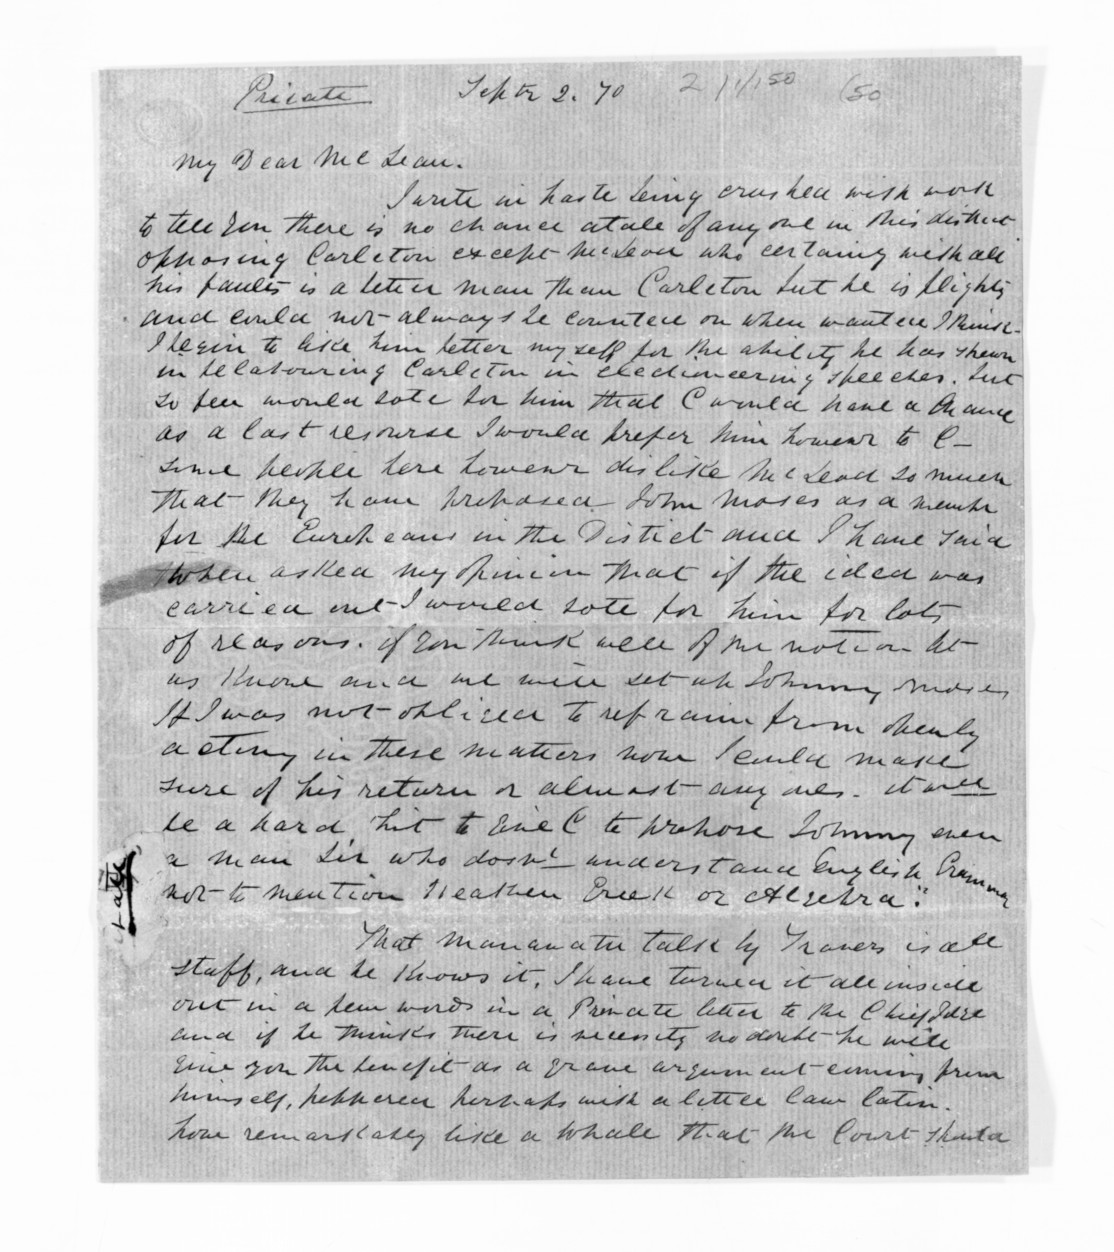 Private Septr 2. 70 2/1/150 (50
My Dear McLean.
I write in haste being crushed with work
to tell you there is no chance atale of any one in this district
opposing Carleton except McLeod who certainly with all
his faults is a better man than Carleton but he is flighty
and could not always be counted on when wanted I think
I begin to like him better myself for the ability he has shewn
in belabouring Carleton in electioneering speeches. but
so few would vote for him that C would have a chance
as a last resourse I would prefer him however to C-
some people here however dislike McLeod so much
that they have proposed John Moses as a member
for the Europeans in the Distict and I have said
when asked my opinion that if the idea was
carried out I would vote for him for lots
of reasons. if you think well of the notion let
us know and we will set up Johnny Moses
If I was not obliged to refrain from openly
acting in these matters now I could make
sure of his return or almost any ones. it will
be a hard hit to give C to propose Johnny even
a man Sir who dosn't understand English Grammar
not to mention Heathen Greek or Algebra."
That Manawatu talk by Travers is all
staff, and he knows it, I have turned it all inside
out in a few words in a Private letter to the Chief Judge
and if he thinks there is necessity no doubt he will
give you the benefit as a grave argument coming from
himself, peppered perhaps with a little law latin.
how remarkably like a whale that the Court should